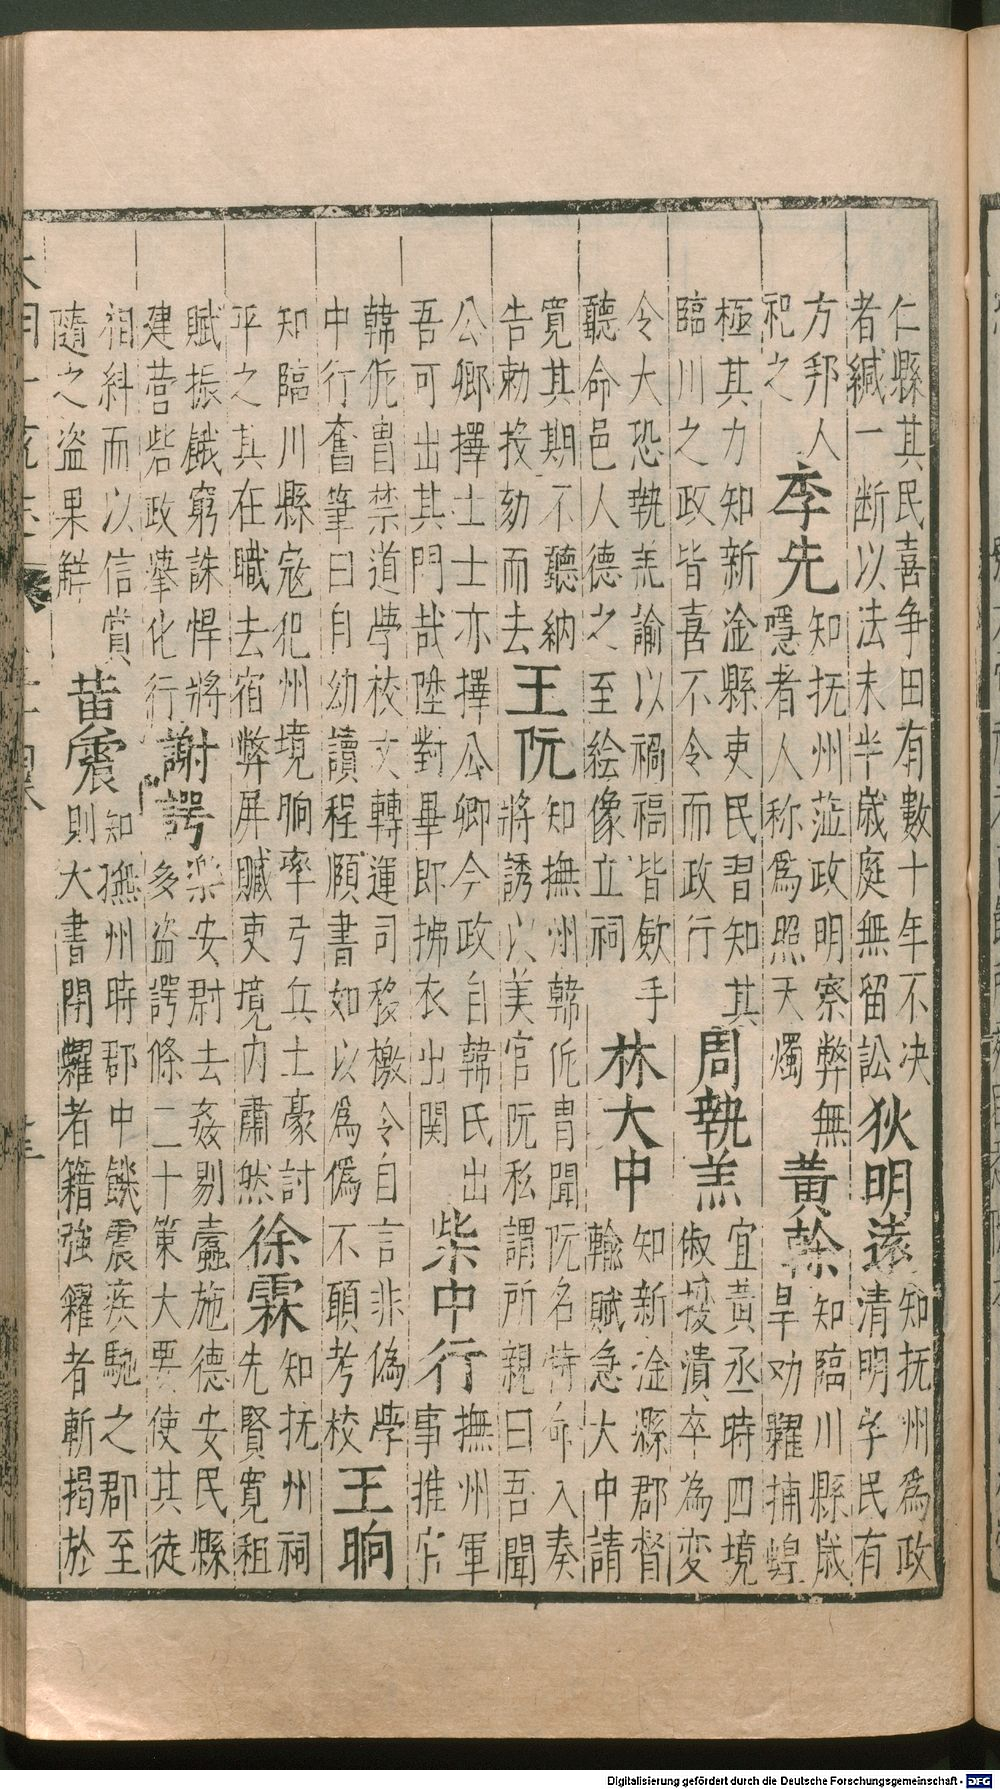 仁縣其民喜争田有數十年不决
者緘一断以法未半歲庭無留訟
狄明遠
知抚州爲政
清明字民有
方邦人
祀之
李先
知抚州蒞政明察弊無
隱者人称爲照天燭
黃榦
知臨川縣歳
旱劝糶捕蝗
極其力知新淦縣吏民習知其
臨川之政皆喜不令而政行
周執羔
宜黃丞時四境
俶擾潰卒為変
令大恐執羔諭以禍福皆歛手
聽命邑人德之至絵像立祠
林大中
知新淦縣郡督
輸賦急大中請
寛其期不聽納
告勅投劾而去
王阮
知撫州韓侂冑聞阮名特命入奏
將誘以美官阮私謂所親曰吾聞
公卿擇士士亦擇公卿今政自韓氏出
吾可出其門哉陞對畢即拂衣出関
柴中行
撫州軍
事推官
韓侂冑禁道學校文轉運司移檄令自言非偽學
中行奮筆曰自幼讀程頤書如以爲偽不願考校
王晌
知臨川縣寇犯州境晌率弓兵土豪討
平之其在職去宿弊屏贓吏境内肅然
徐霖
知抚州祠
先賢寛租
賦振餓窮誅悍將
建营砦政肇化行
謝諤
樂安尉去姦剔蠹施德安民縣
多盗諤條二十策大要使其徒
相糾而以信賞
隨之盗果觧
黃震
知撫州時郡中饑震疾馳之郡至
則大書閉糶者籍強糴者斬揭於
Digitalisierung gefördert durch die Deutsche Forschungsgemeinschaft - DFG